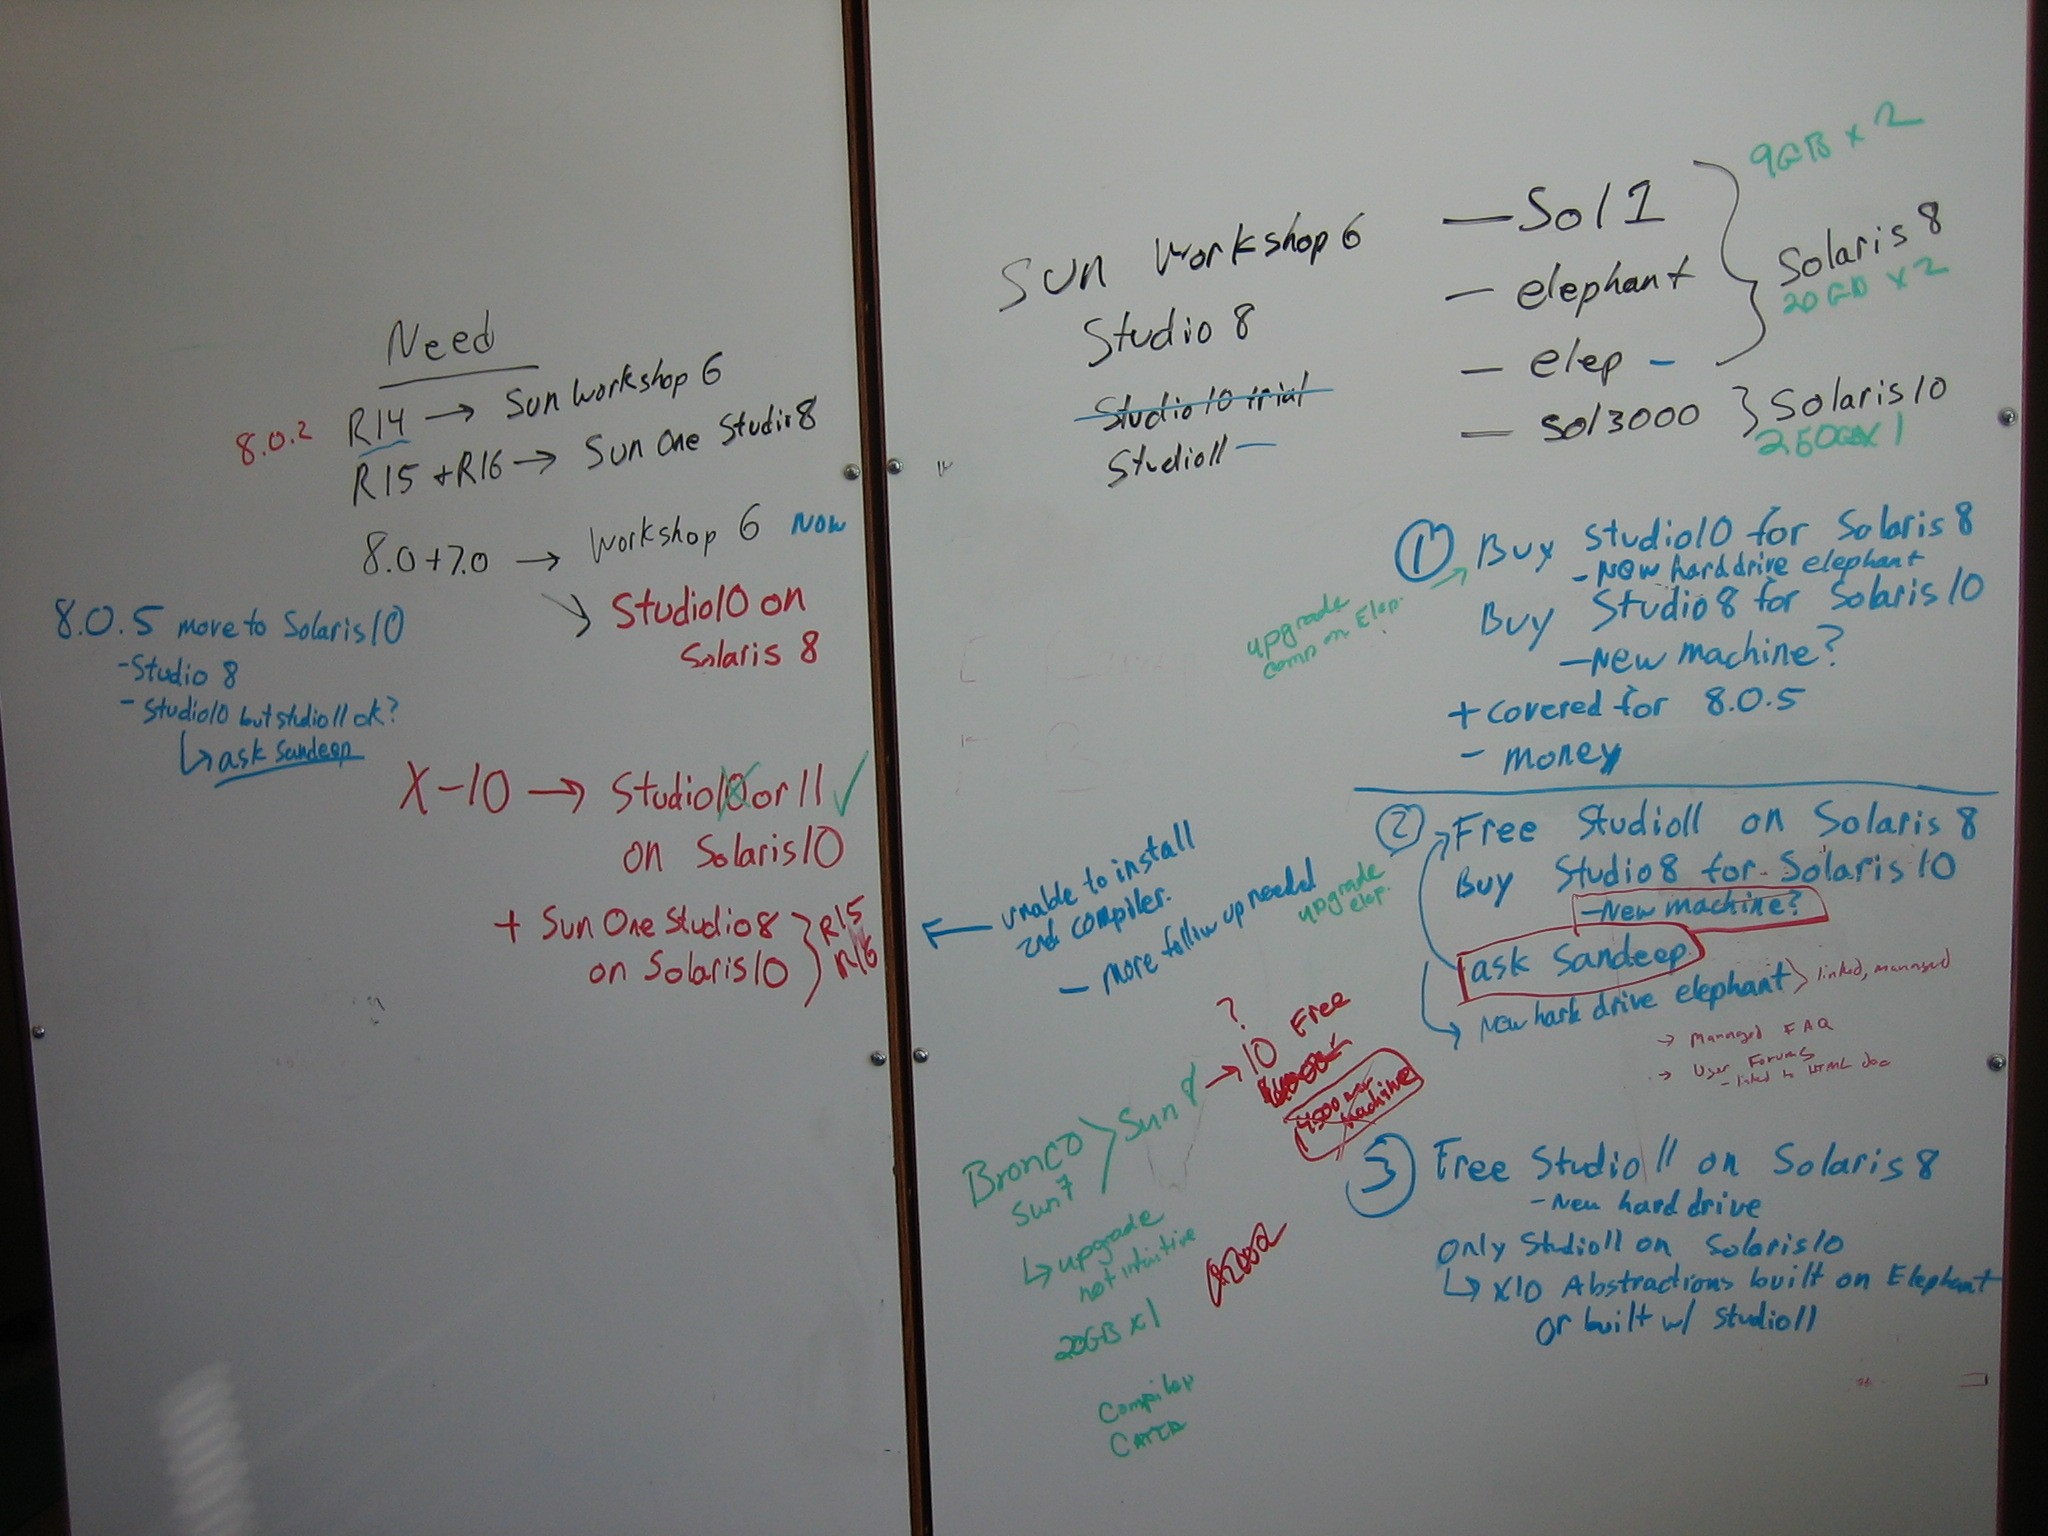 Need
8.0.2 R14 → Sun Workshop 6
R15 + R16 → Sun One Studio 8
8.0 + 7.0 → Workshop 6 Now
Studio10 on
Solaris 8
8.0.5 move to Solaris 10
- Studio 8
- Studio10 but studio11 ok?
↳ ask Sandeep
X-10 → Studio10 or 11 ✓
on Solaris10
+ Sun One Studio8
on Solaris10
R15
R16
Sun Workshop 6
Studio 8
Studio 10 trial
Studio11 —
— Sol 1
— elephant
— elep —
— sol3000
9GB x 2
Solaris 8
20GB x 2
Solaris 10
250GB x 1
① Buy Studio10 for Solaris 8
- New hard drive elephant
Buy Studio8 for Solaris 10
- New machine?
+ covered for 8.0.5
- money
upgrade
comp on Elep.
② Free Studio11 on Solaris 8
Buy Studio8 for Solaris 10
- New machine?
ask Sandeep
New hark drive elephant
linked, managed
→ Managed FAQ
→ User Forums
- linked to HTML doc
upgrade
elep.
← unable to install
2nd compiler.
- more follow up needed
?
Bronco
Sun 7
Sun 8 → 10 Free
machine
↳ upgrade
not intuitive
20GB x 1
Compiler
③ Free Studio 11 on Solaris 8
- New hard drive
Only Studio11 on Solaris10
↳ X10 Abstractions built on Elephant
or built w/ Studio11